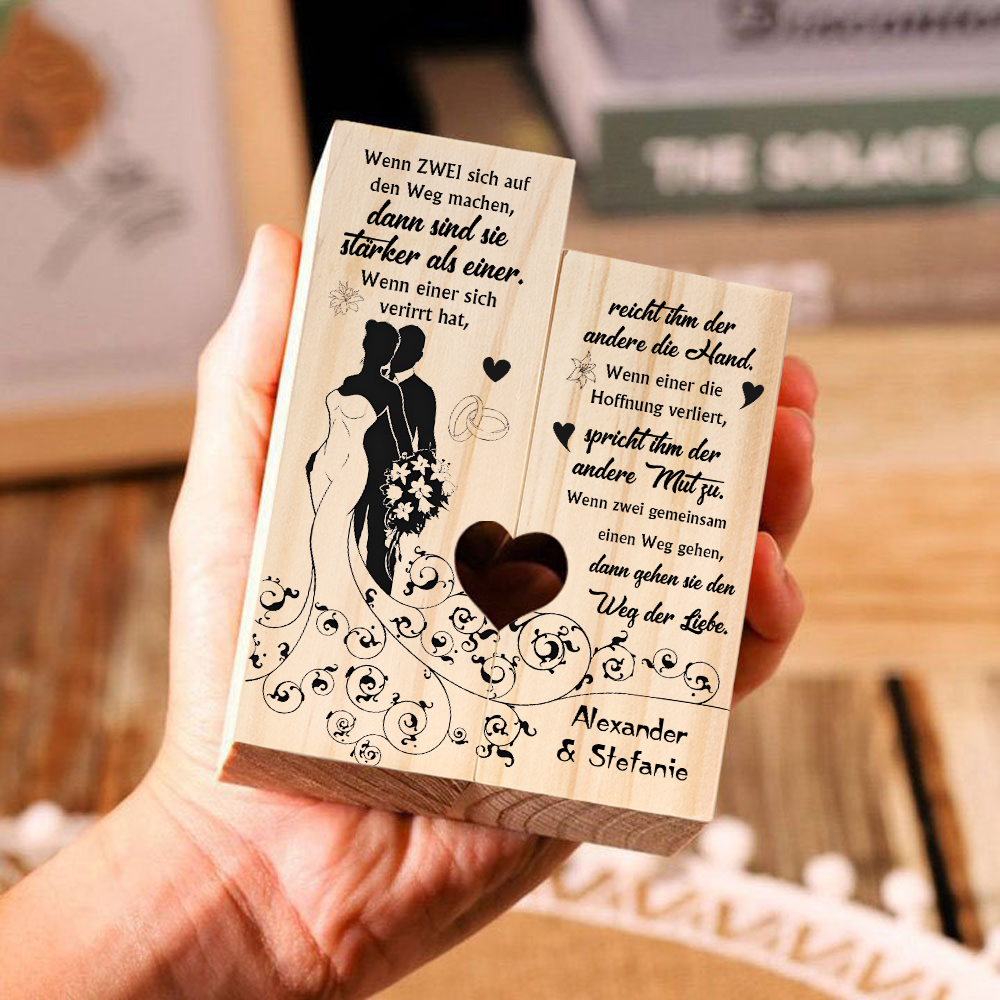 Wenn ZWEI sich auf
den Weg machen,
dann sind sie
stärker als einer.
Wenn einer sich
verirrt hat,
reicht ihm der
andere die Hand.
Wenn einer die
Hoffnung verliert,
spricht ihm der
andere Mut zu.
Wenn zwei gemeinsam
einen Weg gehen,
dann gehen sie den
Weg der Liebe.
Alexander
& Stefanie
THE SOLACE